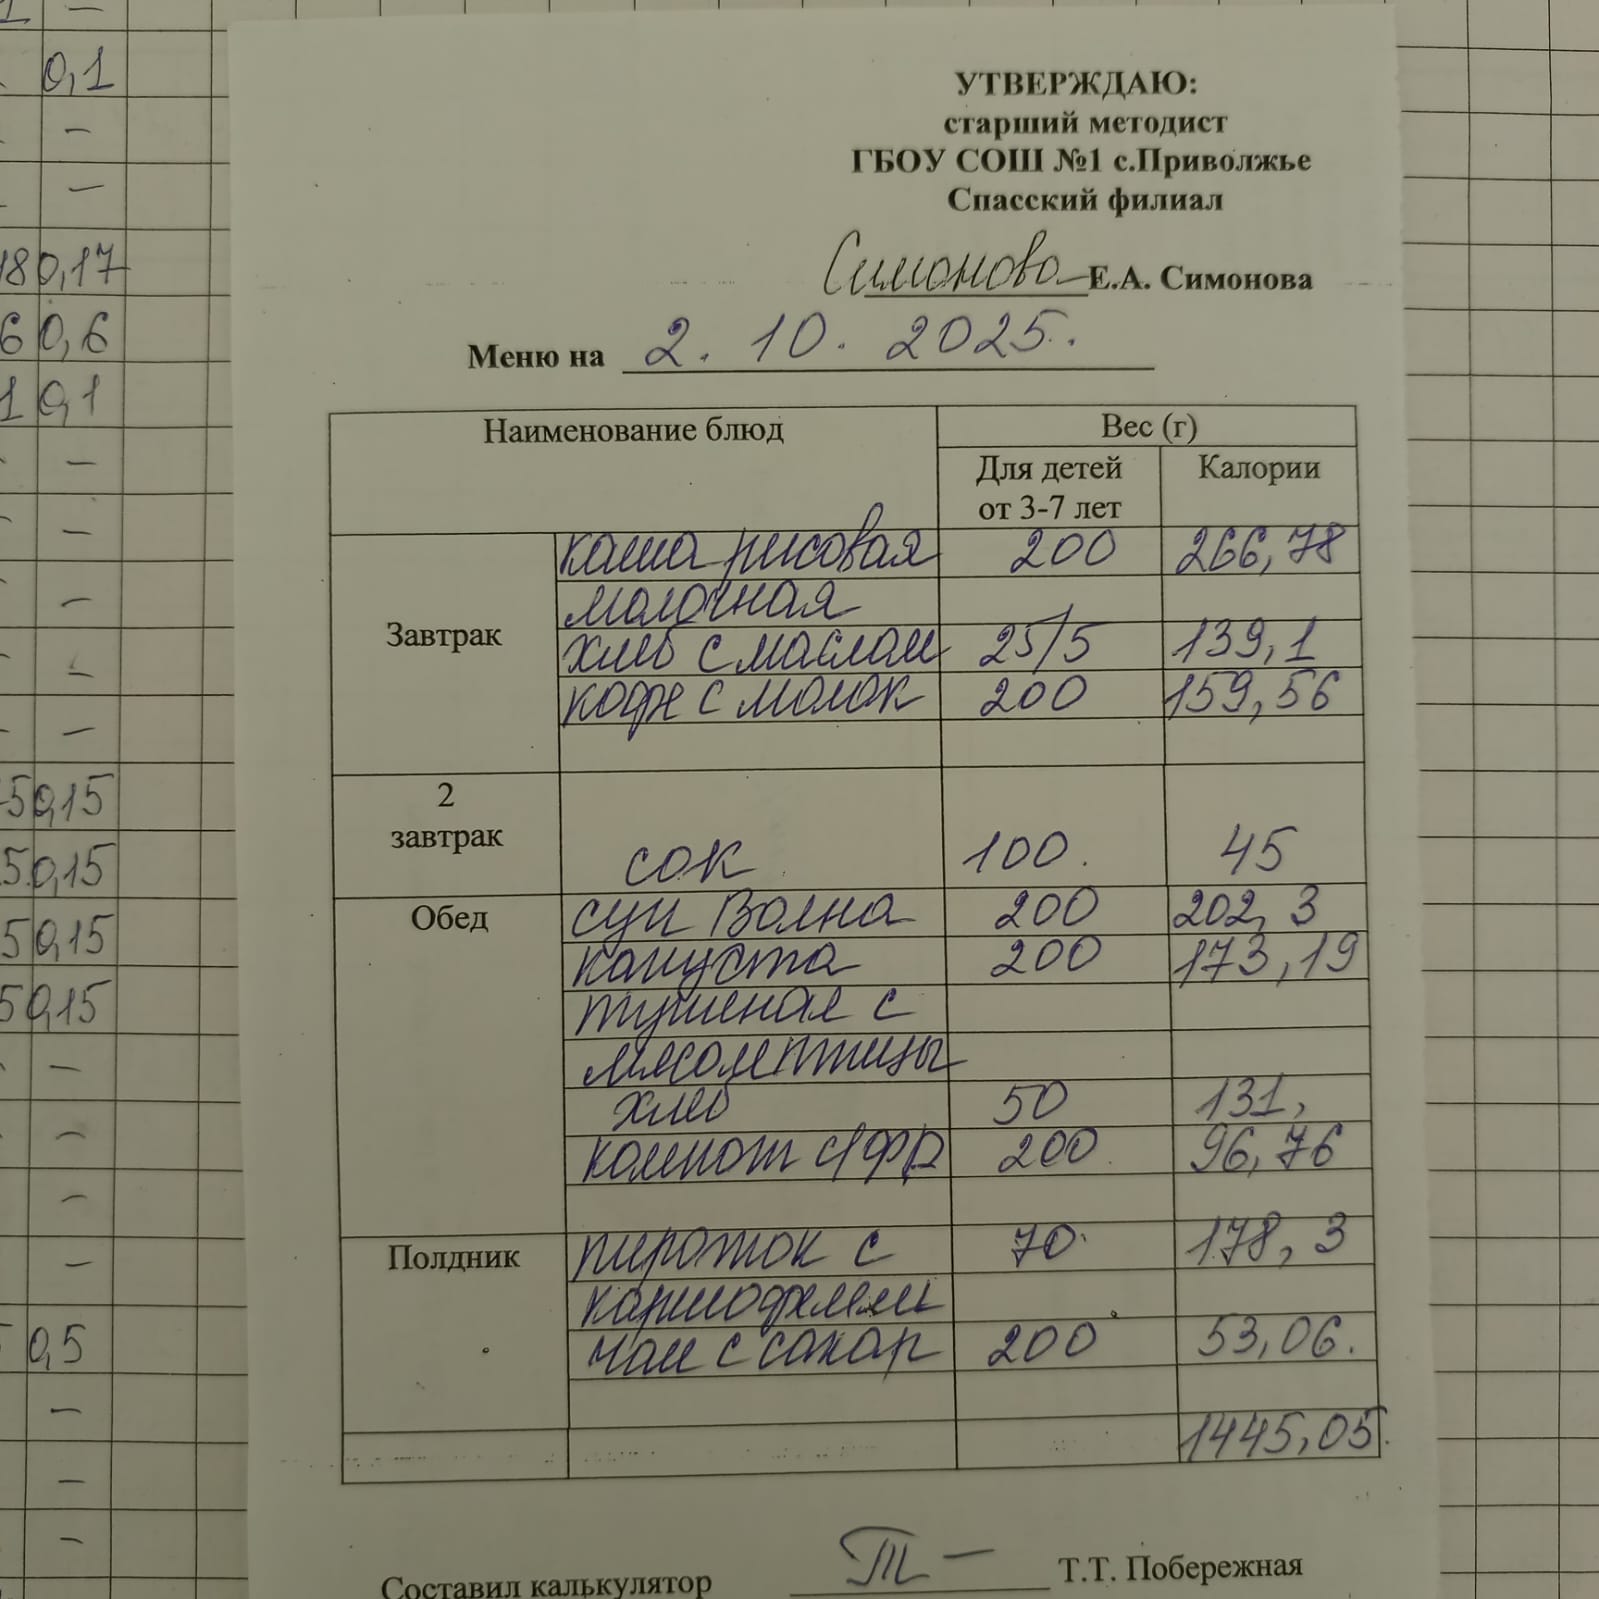 УТВЕРЖДАЮ:
старший методист
ГБОУ СОШ №1 с.Приволжье
Спасский филиал
Симонова Е.А. Симонова
Меню на 2. 10. 2025.
Наименование блюд Вес (г)
Для детей от 3-7 лет Калории
Завтрак
каша рисовая 200 266,78
молочная
хлеб с маслом 25/5 139,1
кофе с молок 200 159,56
2 завтрак
сок 100. 45
Обед
суп Волна 200 202,3
капуста 200 173,19
тушеная с
мясом птицы
хлеб 50 131,
компот с/фр 200 96,76
Полдник
пирожок с 70 178,3
картофелем
чай с сахар 200 53,06.
1445,05.
Составил калькулятор Т.Т. Побережная
0,1
-
-
18 0,17
6 0,6
1 0,1
-
-
-
-
-
5 0,15
5 0,15
5 0,15
5 0,15
-
-
-
-
0,5
-
-
-